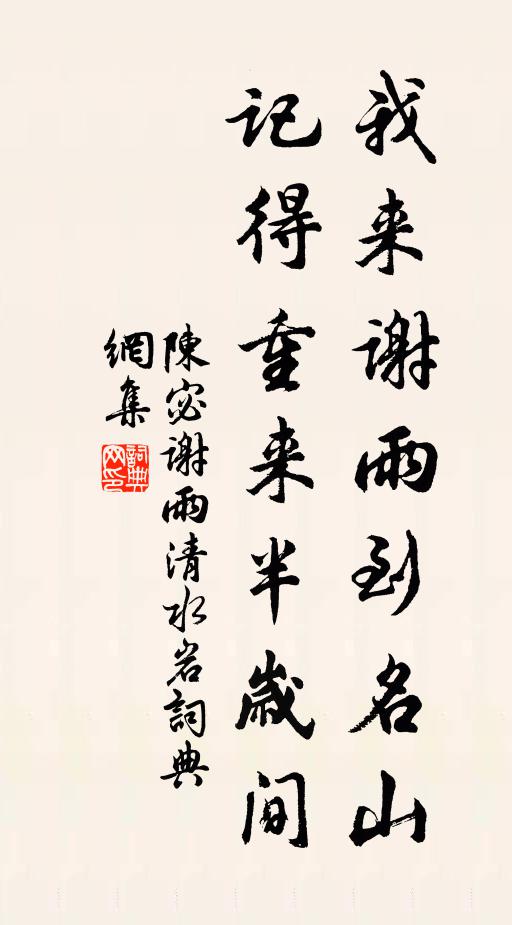 我来谢雨到名山
記得重来半歲间
陳宓谢雨清水岩詞典
網集
詞典
网印